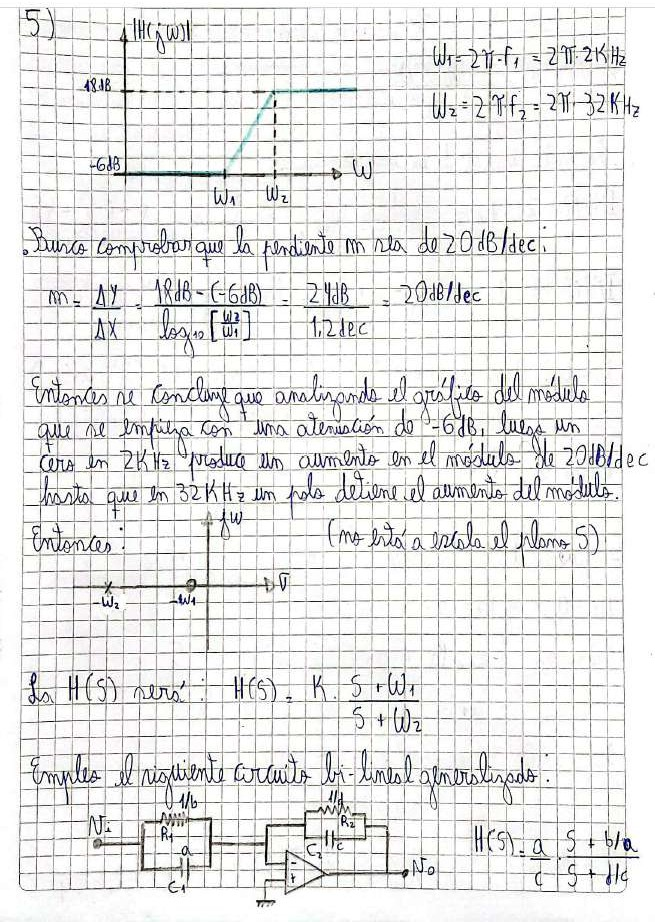 5)
|H(jω)|
18dB
-6dB
ω1 ω2
ω
ω1 = 2π·f1 = 2π·2KHz
ω2 = 2πf2 = 2π·32KHz
Busco comprobar que la pendiente m sea de 20dB/dec:
m = ΔY/ΔX = (18dB-(-6dB))/(log10[ω2/ω1]) = 24dB/1,2dec = 20dB/dec
Entonces se concluye que analizando el gráfico del módulo
que se empieza con una atenuación de -6dB, luego un
cero en 2KHz produce un aumento en el módulo de 20dB/dec
hasta que en 32KHz un polo detiene el aumento del módulo.
Entonces:
jω
(no está a escala el plano S)
σ
-ω2 -ω1
La H(S) será: H(S) = K · (S+ω1)/(S+ω2)
Empleo el siguiente circuito bi-lineal generalizado:
Ni
1/b
R1
a
C1
1/d
R2
C2
c
-
+
No
H(S) = a/c · (S + b/a)/(S + d/c)